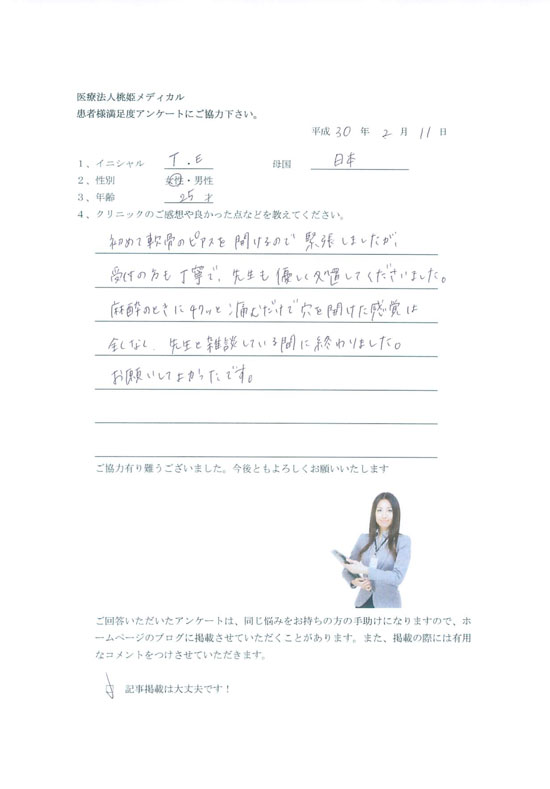 医療法人桃姫メディカル
患者様満足度アンケートにご協力下さい。
平成 30 年 2 月 11 日
1、イニシャル T.E 母国 日本
2、性別 女性・男性
3、年齢 25才
4、クリニックのご感想や良かった点などを教えてください。
初めて軟骨のピアスを開けるので緊張しましたが、
受付の方も丁寧で、先生も優しく処置してくださいました。
麻酔のときにチクッと痛むだけで穴を開けた感覚は
全くなく、先生と雑談している間に終わりました。
お願いしてよかったです。
ご協力有り難うございました。今後ともよろしくお願いいたします
ご回答いただいたアンケートは、同じ悩みをお持ちの方の手助けになりますので、ホ
ームページのブログに掲載させていただくことがあります。また、掲載の際には有用
なコメントをつけさせていただきます。
□ 記事掲載は大丈夫です！